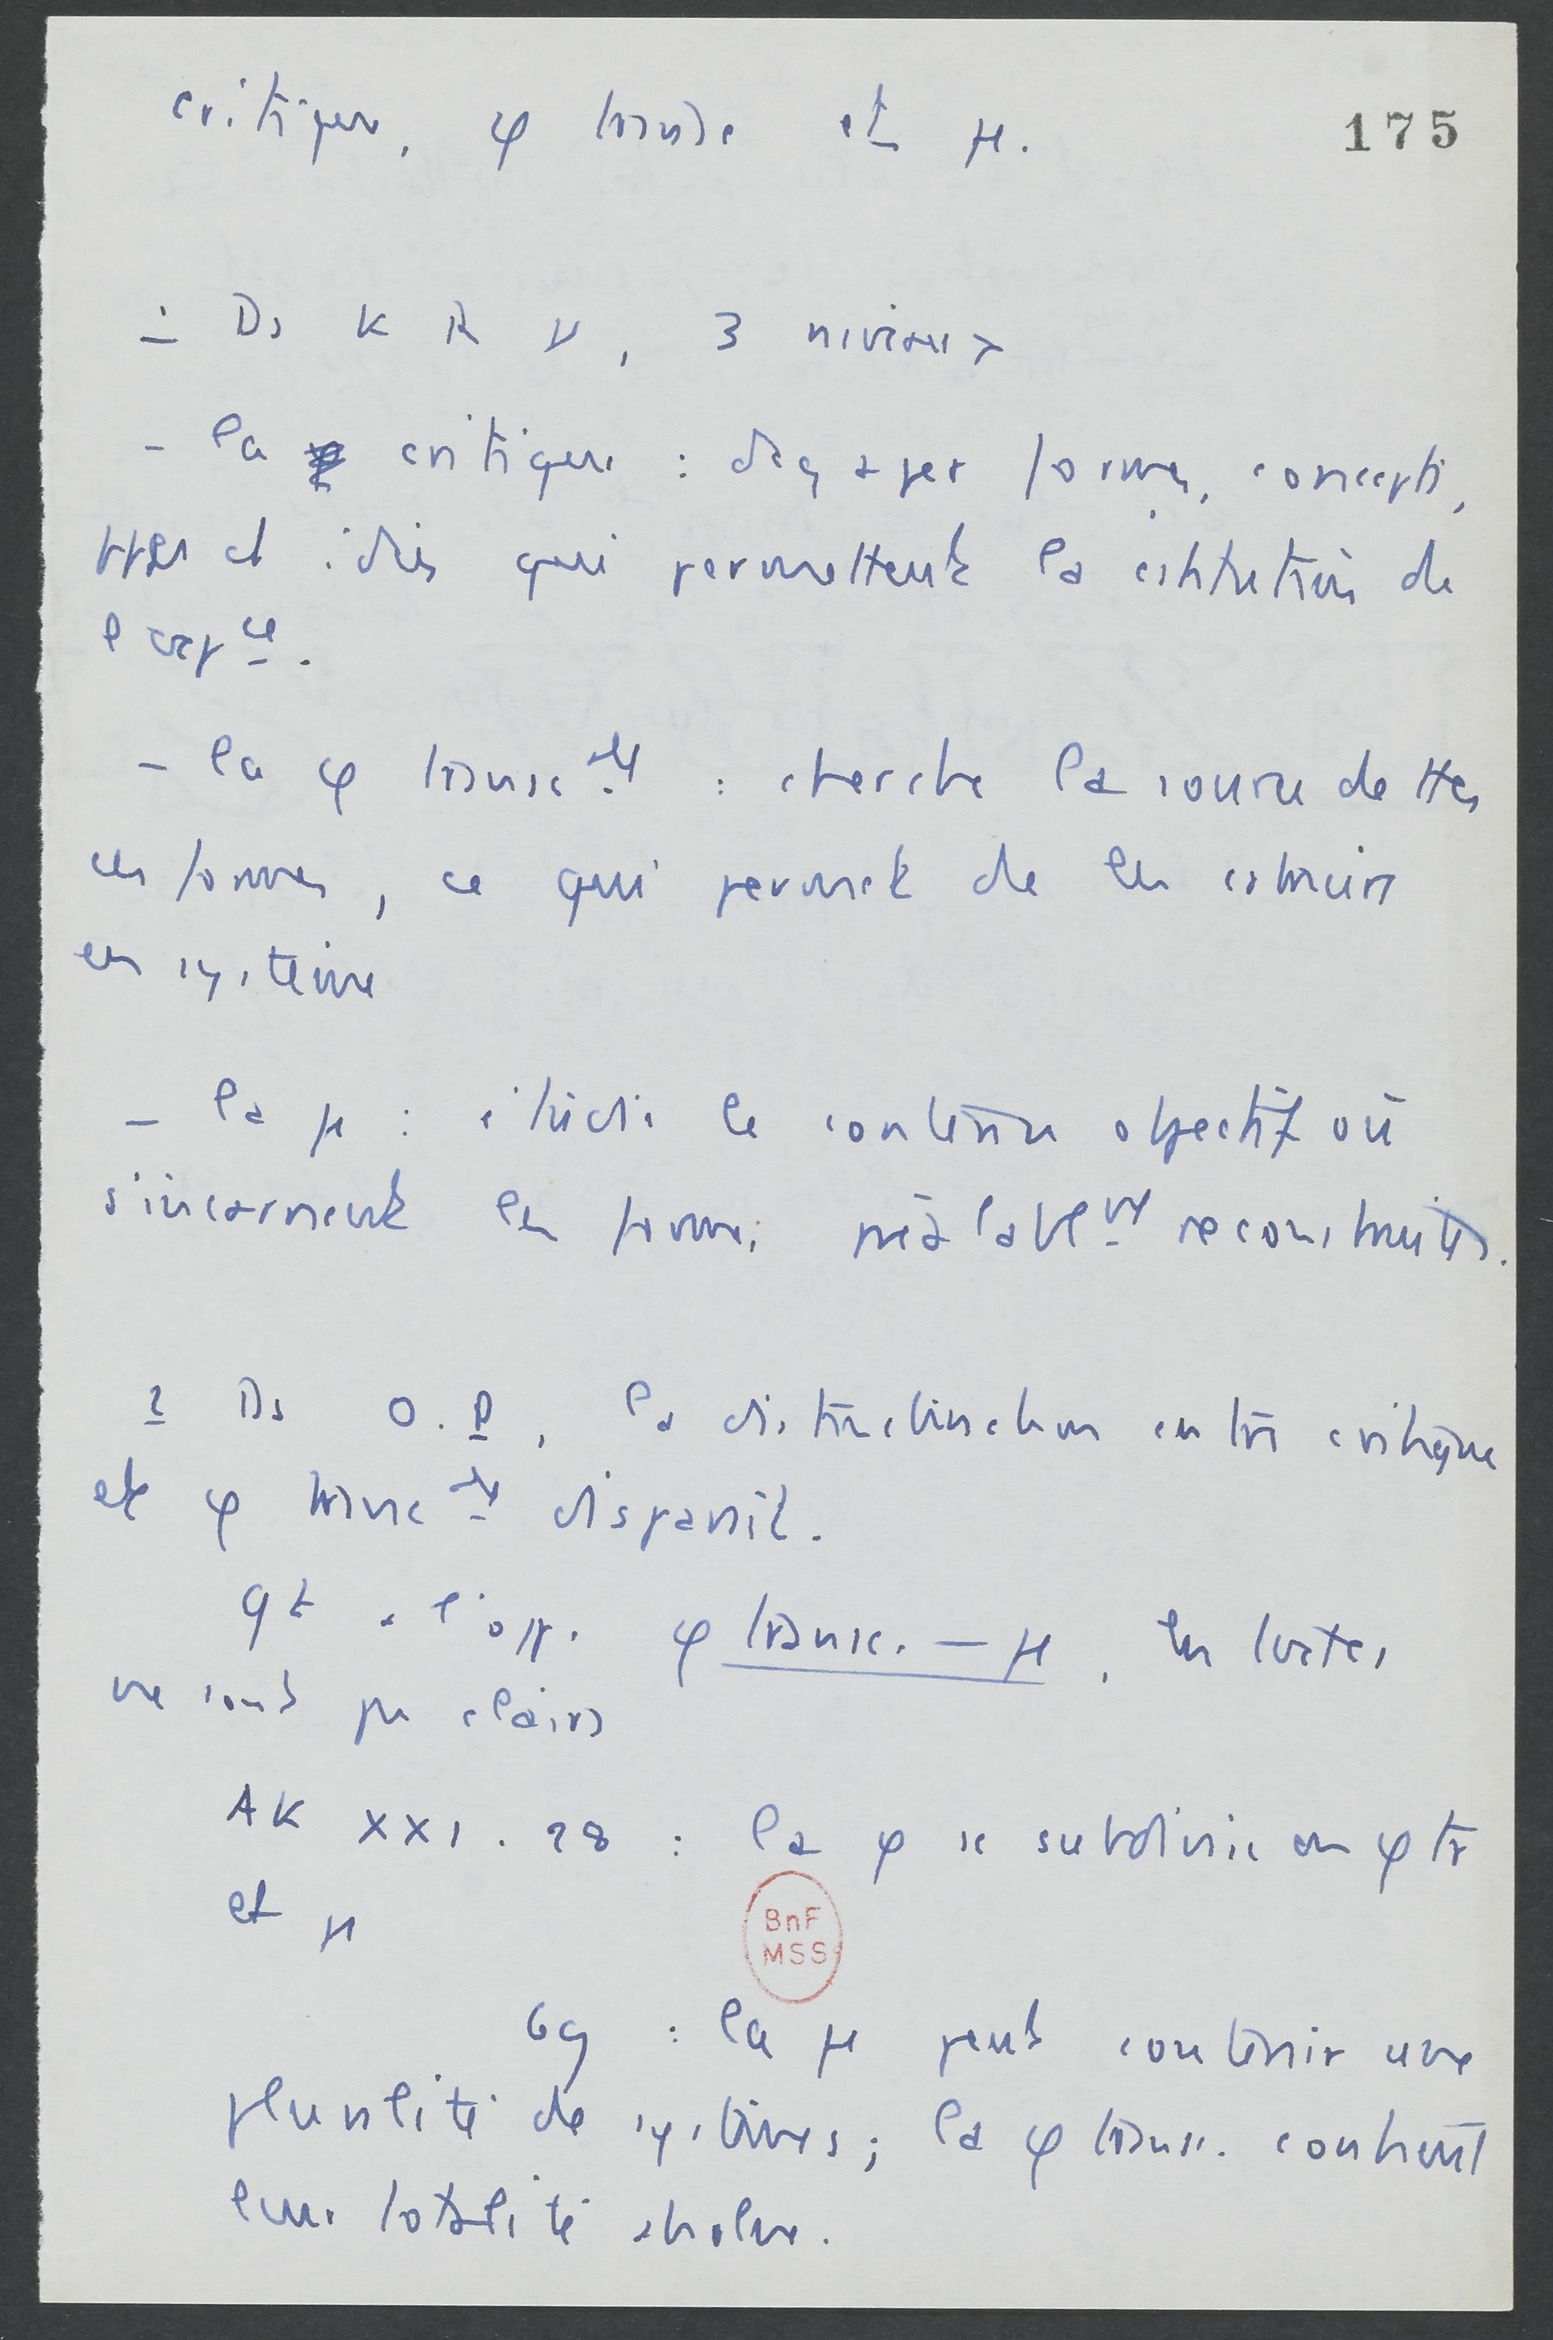 critique, φ transc et μ.
175
1 Ds K R V, 3 niveaux
- la critique : dégager formes, concepts,
ppes et idées qui permettent la cstitution de
l'expce.
- la φ transcle : cherche la source de ttes
ces formes, ce qui permet de les cstruire
en système
- la μ : étudie le contenu objectif où
s'incarnent les formes préalablemt reconstruites.
2 Ds O.P, la distinction entre critique
et φ transcle disparait.
Qt à l'opp. φ transc. — μ, les textes
ne sont pas clairs
AK XXI. 28 : la φ se subdivise en φ tr
et μ
BnF
MSS
69 : la μ peut contenir une
pluralité de systèmes ; la φ transc. contient
leur totalité absolue.